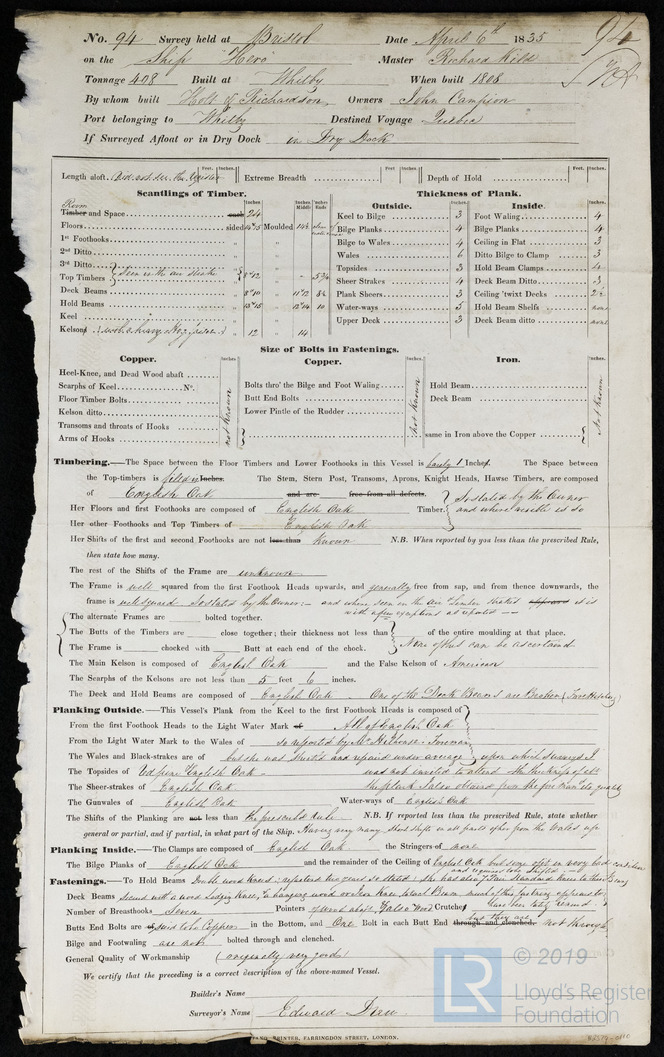 No. 94 Survey held at Bristol Date April 6th 1835 94
on the Ship Hero Master Richard Kidd
Tonnage 408 Built at Whitby When built 1808
By whom built Holt & Richardson Owners John Campion
Port belonging to Whitby Destined Voyage Quebec
If Surveyed Afloat or in Dry Dock in Dry Dock
Feet. Inches. Feet Inches. Feet. Inches.
Length aloft Did not see the Register Extreme Breadth Depth of Hold
Scantlings of Timber. Thickness of Plank.
Outside. Inside.
Room
Timber and Space each 24 Keel to Bilge 3 Foot Waling 4
Floors sided 14 15 Moulded 14½ Bilge Planks 4 Bilge Planks 4
1st Foothooks Bilge to Wales 4 Ceiling in Flat 3
2nd Ditto Wales 6 Ditto Bilge to Clamp 3
3rd Ditto Topsides 3 Hold Beam Clamps 4
Top Timbers seen in the air strake 8 12 5¾ Sheer Strakes 4 Deck Beam Ditto 3
Deck Beams 8 10 11 12 8½ Plank Sheers 3 Ceiling 'twixt Decks 2½
Hold Beams 13 15 12 14 10 Water-ways 3 Hold Beam Shelfs none
Keel Upper Deck 3 Deck Beam ditto none
Kelsons 12 14
Size of Bolts in Fastenings.
Copper. Copper. Iron.
Heel-Knee, and Dead Wood abaft
Scarphs of Keel No. Bolts thro' the Bilge and Foot Waling Hold Beam
Floor Timber Bolts Butt End Bolts Deck Beam
Kelson ditto Lower Pintle of the Rudder
Transoms and throats of Hooks
Arms of Hooks same in Iron above the Copper
not known not known not known
Timbering.—The Space between the Floor Timbers and Lower Foothooks in this Vessel is barely 1 Inches. The Space between
the Top-timbers is filled in Inches. The Stem, Stern Post, Transoms, Aprons, Knight Heads, Hawse Timbers, are composed
of English Oak and are free from all defects. So stated by the Owner
Her Floors and first Foothooks are composed of English Oak Timber. and where visible is so
Her other Foothooks and Top Timbers of English Oak
Her Shifts of the first and second Foothooks are not less than known N.B. When reported by you less than the prescribed Rule,
then state how many.
The rest of the Shifts of the Frame are unknown
The Frame is well squared from the first Foothook Heads upwards, and generally free from sap, and from thence downwards, the
frame is well squared so stated by the Owner:— and where seen in the air & timber strakes it is
with a few exceptions as reported
The alternate Frames are bolted together.
The Butts of the Timbers are close together; their thickness not less than of the entire moulding at that place.
The Frame is chocked with Butt at each end of the chock. None of this can be ascertained
The Main Kelson is composed of English Oak and the False Kelson of American
The Scarphs of the Kelsons are not less than 5 feet 6 inches.
The Deck and Hold Beams are composed of English Oak One of the Deck Beams are Broken
Planking Outside.—This Vessel's Plank from the Keel to the first Foothook Heads is Composed of
From the first Foothook Heads to the Light Water Mark of All of English Oak
From the Light Water Mark to the Wales of so reported by Mr Hilhouse Foreman
The Wales and Black-strakes are of but she was and repaired under average upon which surveyd I
The Topsides of English Oak was not invited to attend the thickness of all
The Sheer-strakes of English Oak the plank I also obtained from the foreman its quality
The Gunwales of English Oak Water-ways of English Oak
The Shifts of the Planking are not less than the prescribed Rule N.B. If reported less than the prescribed Rule, state whether
general or partial, and if partial, in what part of the Ship. Having very many short shifts in all parts of her from the Wales up
Planking Inside.—The Clamps are composed of English Oak the Stringers of none
The Bilge Planks of English Oak and the remainder of the Ceiling of English Oak but some of it in very bad condition
and required to be shifted
Fastenings.—To Hold Beams Double wood Knees
Deck Beams secured with a wood Lodging Knee, a hanging wood or Iron Knee to each Beam, much of this fastening appears to
have been lately renewd.
Number of Breasthooks Seven Pointers Crutches
Butts End Bolts are of said to be Copper in the Bottom, and One Bolt in each Butt End through and clenched. but they are not through
Bilge and Footwaling are not bolted through and clenched.
General Quality of Workmanship (originally very good)
We certify that the preceding is a correct description of the above-named Vessel.
Builder's Name
Surveyor's Name Edward Drew
PRINTER, FARRINGDON STREET, LONDON.
© 2019
LR Lloyd's Register
Foundation